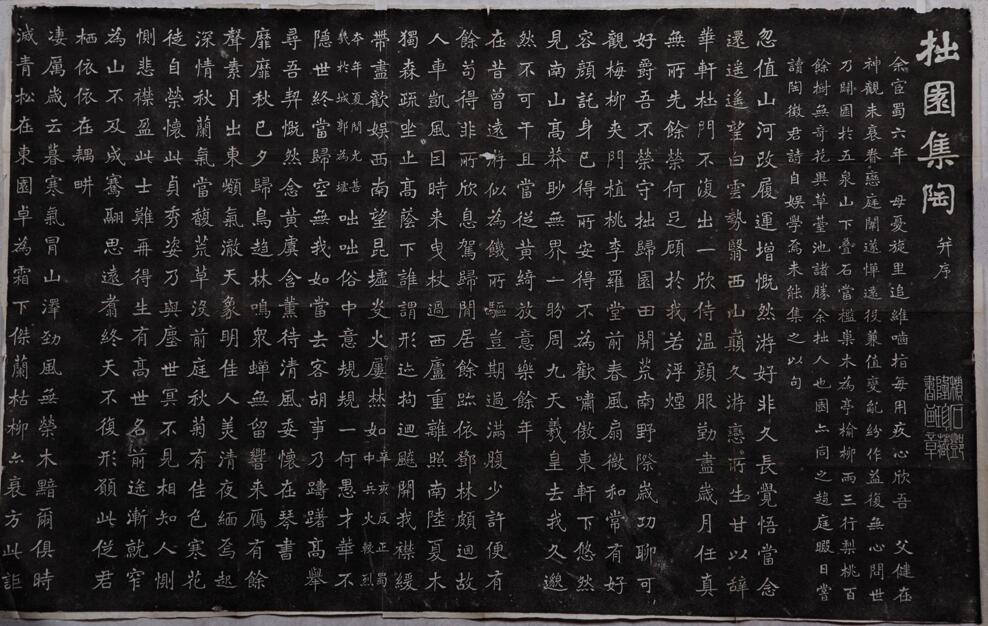 拙園集陶 并序
余宦蜀六年 母憂旋里追維嚙指每用疚心欣吾 父健在
神觀未衰眷戀庭闈遂憚遠役兼值變亂紛作益復無心問世
乃闢園於五泉山下疊石當檻巢木為亭榆柳兩三行梨桃百
餘樹無奇花異草臺池諸勝余拙人也園亦同之趨庭暇日嘗
讀陶徵君詩自娛學焉未能集之以句
忽值山河改履運增慨然游好非久長覺悟當念
還遥遥望白雲勢翳西山巔久游戀所生甘以辭
華軒杜門不復出一欣侍温顔服勤盡歲月任真
無所先餘榮何足顧於我若浮煙
好爵吾不榮守拙歸園田開荒南野際歲功聊可
觀梅柳夾門植桃李羅堂前春風扇微和常有好
容顔託身已得所安得不為歡嘯傲東軒下悠然
見南山高莽眇無界一盼周九天羲皇去我久邈
然不可干且當從黄綺放意樂餘年
在昔曾遠游似為饑所驅豈期過滿腹少許便有
餘苟得非所欣息駕歸閒居餘跡依鄧林頗迴故
人車凱風因時来曳杖過西廬重離照南陸夏木
獨森疏坐止高蔭下誰謂形迹拘迴飈開我襟緩
帶盡歡娱西南望昆墟炎火屢焚如辛亥反正蜀中兵火較烈
本年夏間尤甚幾於城郭為墟咄咄俗中意規規一何愚才華不
隱世終當歸空無我如當去客胡事乃躊躇高舉
尋吾契慨然念黄虞含薰待清風委懷在琴書
靡靡秋已夕歸鳥趨林鳴衆蟬無留響来鴈有餘
聲素月出東嶺氣澈天象明佳人美清夜緬焉起
深情秋蘭氣當馥荒草没前庭秋菊有佳色寒花
徒自榮懷此貞秀姿乃與塵世冥不見相知人惻
惻悲襟盈此士難再得生有高世名前途漸就窄
為山不及成騫翮思遠翥終天不復形願此從君
栖依依在耦畊
凄厲歲云暮寒氣冒山澤勁風無榮木黯爾俱時
滅青松在東園卓為霜下傑蘭枯柳亦衰方此詎